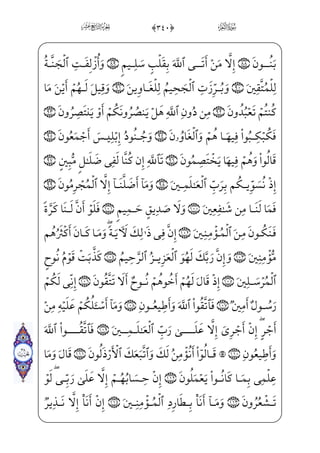 ﴿٣٤٠﴾
بَنُونَ ﴿٨٨﴾ إِلَّا مَنْ أَتَى ٱللَّهَ بِقَلْبٍ سَلِيمٍ ﴿٨٩﴾ وَأُزْلِفَتِ ٱلْجَنَّةُ
لِلْمُتَّقِينَ ﴿٩٠﴾ وَبُرِّزَتِ ٱلْجَحِيمُ لِلْغَاوِينَ ﴿٩١﴾ وَقِيلَ لَهُمْ أَيْنَ مَا
كُنْتُمْ تَعْبُدُونَ ﴿٩٢﴾ مِن دُونِ ٱللَّهِ هَلْ يَنْصُرُونَكُمْ أَوْ يَنْتَصِرُونَ ﴿٩٣﴾
فَكُبْكِبُوا۟ فِيهَا هُمْ وَٱلْغَاوُۥنَ ﴿٩٤﴾ وَجُنُودُ إِبْلِيسَ أَجْمَعُونَ ﴿٩٥﴾
قَالُوا۟ وَهُمْ فِيهَا يَخْتَصِمُونَ ﴿٩٦﴾ تَٱللَّهِ إِن كُنَّا لَفِى ضَلَٰلٍ مُّبِينٍ ﴿٩٧﴾
إِذْ نُسَوِّيكُم بِرَبِّ ٱلْعَٰلَمِينَ ﴿٩٨﴾ وَمَآ أَضَلَّنَآ إِلَّا ٱلْمُجْرِمُونَ ﴿٩٩﴾
فَمَا لَنَا مِن شَٰفِعِينَ ﴿١٠٠﴾ وَلَا صَدِيقٍ حَمِيمٍ ﴿١٠١﴾ فَلَوْ أَنَّ لَنَا كَرَّةً
فَنَكُونَ مِنَ ٱلْمُؤْمِنِينَ ﴿١٠٢﴾ إِنَّ فِى ذَٰلِكَ لَـَٔايَةً وَمَا كَانَ أَكْثَرُهُم
مُّؤْمِنِينَ ﴿١٠٣﴾ وَإِنَّ رَبَّكَ لَهُوَ ٱلْعَزِيزُ ٱلرَّحِيمُ ﴿١٠٤﴾ كَذَّبَتْ قَوْمُ نُوحٍ
ٱلْمُرْسَلِينَ ﴿١٠٥﴾ إِذْ قَالَ لَهُمْ أَخُوهُمْ نُوحٌ أَلَا تَتَّقُونَ ﴿١٠٦﴾ إِنِّى لَكُمْ
رَسُولٌ أَمِينٌ ﴿١٠٧﴾ فَٱتَّقُوا۟ ٱللَّهَ وَأَطِيعُونِ ﴿١٠٨﴾ وَمَآ أَسْـَٔلُكُمْ عَلَيْهِ مِنْ
أَجْرٍ إِنْ أَجْرِىَ إِلَّا عَلَىٰ رَبِّ ٱلْعَٰلَمِينَ ﴿١٠٩﴾ فَٱتَّقُوا۟ ٱللَّهَ
وَأَطِيعُونِ ﴿١١٠﴾ قَالُوٓا۟ أَنُؤْمِنُ لَكَ وَٱتَّبَعَكَ ٱلْأَرْذَلُونَ ﴿١١١﴾ قَالَ وَمَا
عِلْمِى بِمَا كَانُوا۟ يَعْمَلُونَ ﴿١١٢﴾ إِنْ حِسَابُهُمْ إِلَّا عَلَىٰ رَبِّى لَوْ
تَشْعُرُونَ ﴿١١٣﴾ وَمَآ أَنَا۠ بِطَارِدِ ٱلْمُؤْمِنِينَ ﴿١١٤﴾ إِنْ أَنَا۠ إِلَّا نَذِيرٌ